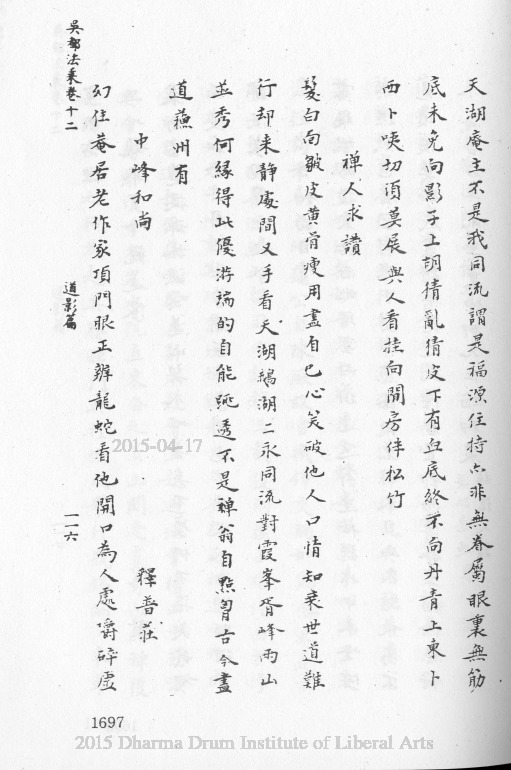 天湖庵主不是我同流謂是福源住持亦非無眷屬眼裏無筋
底未免向影子上胡猜亂猜皮下有血底終不向丹青上東卜
西卜咦切須莫展與人看挂向閒房伴松竹
禪人求讚
髮白面皺皮黃骨瘦用盡自己心笑破他人口情知末世道難
行却來靜處間叉手看天湖鶴湖二水同流對霞峯胥峰兩山
並秀何緣得此優游端的自能跳透不是禪翁自點胷古今盡
道蘓州有
中峰和尚
釋普莊
幻住菴居老作家項門眼正辨龍蛇看他開口為人處嚼碎虛
吳都法乘卷十二
道影篇
一一六
1697
2015-04-17
2015 Dharma Drum Institute of Liberal Arts